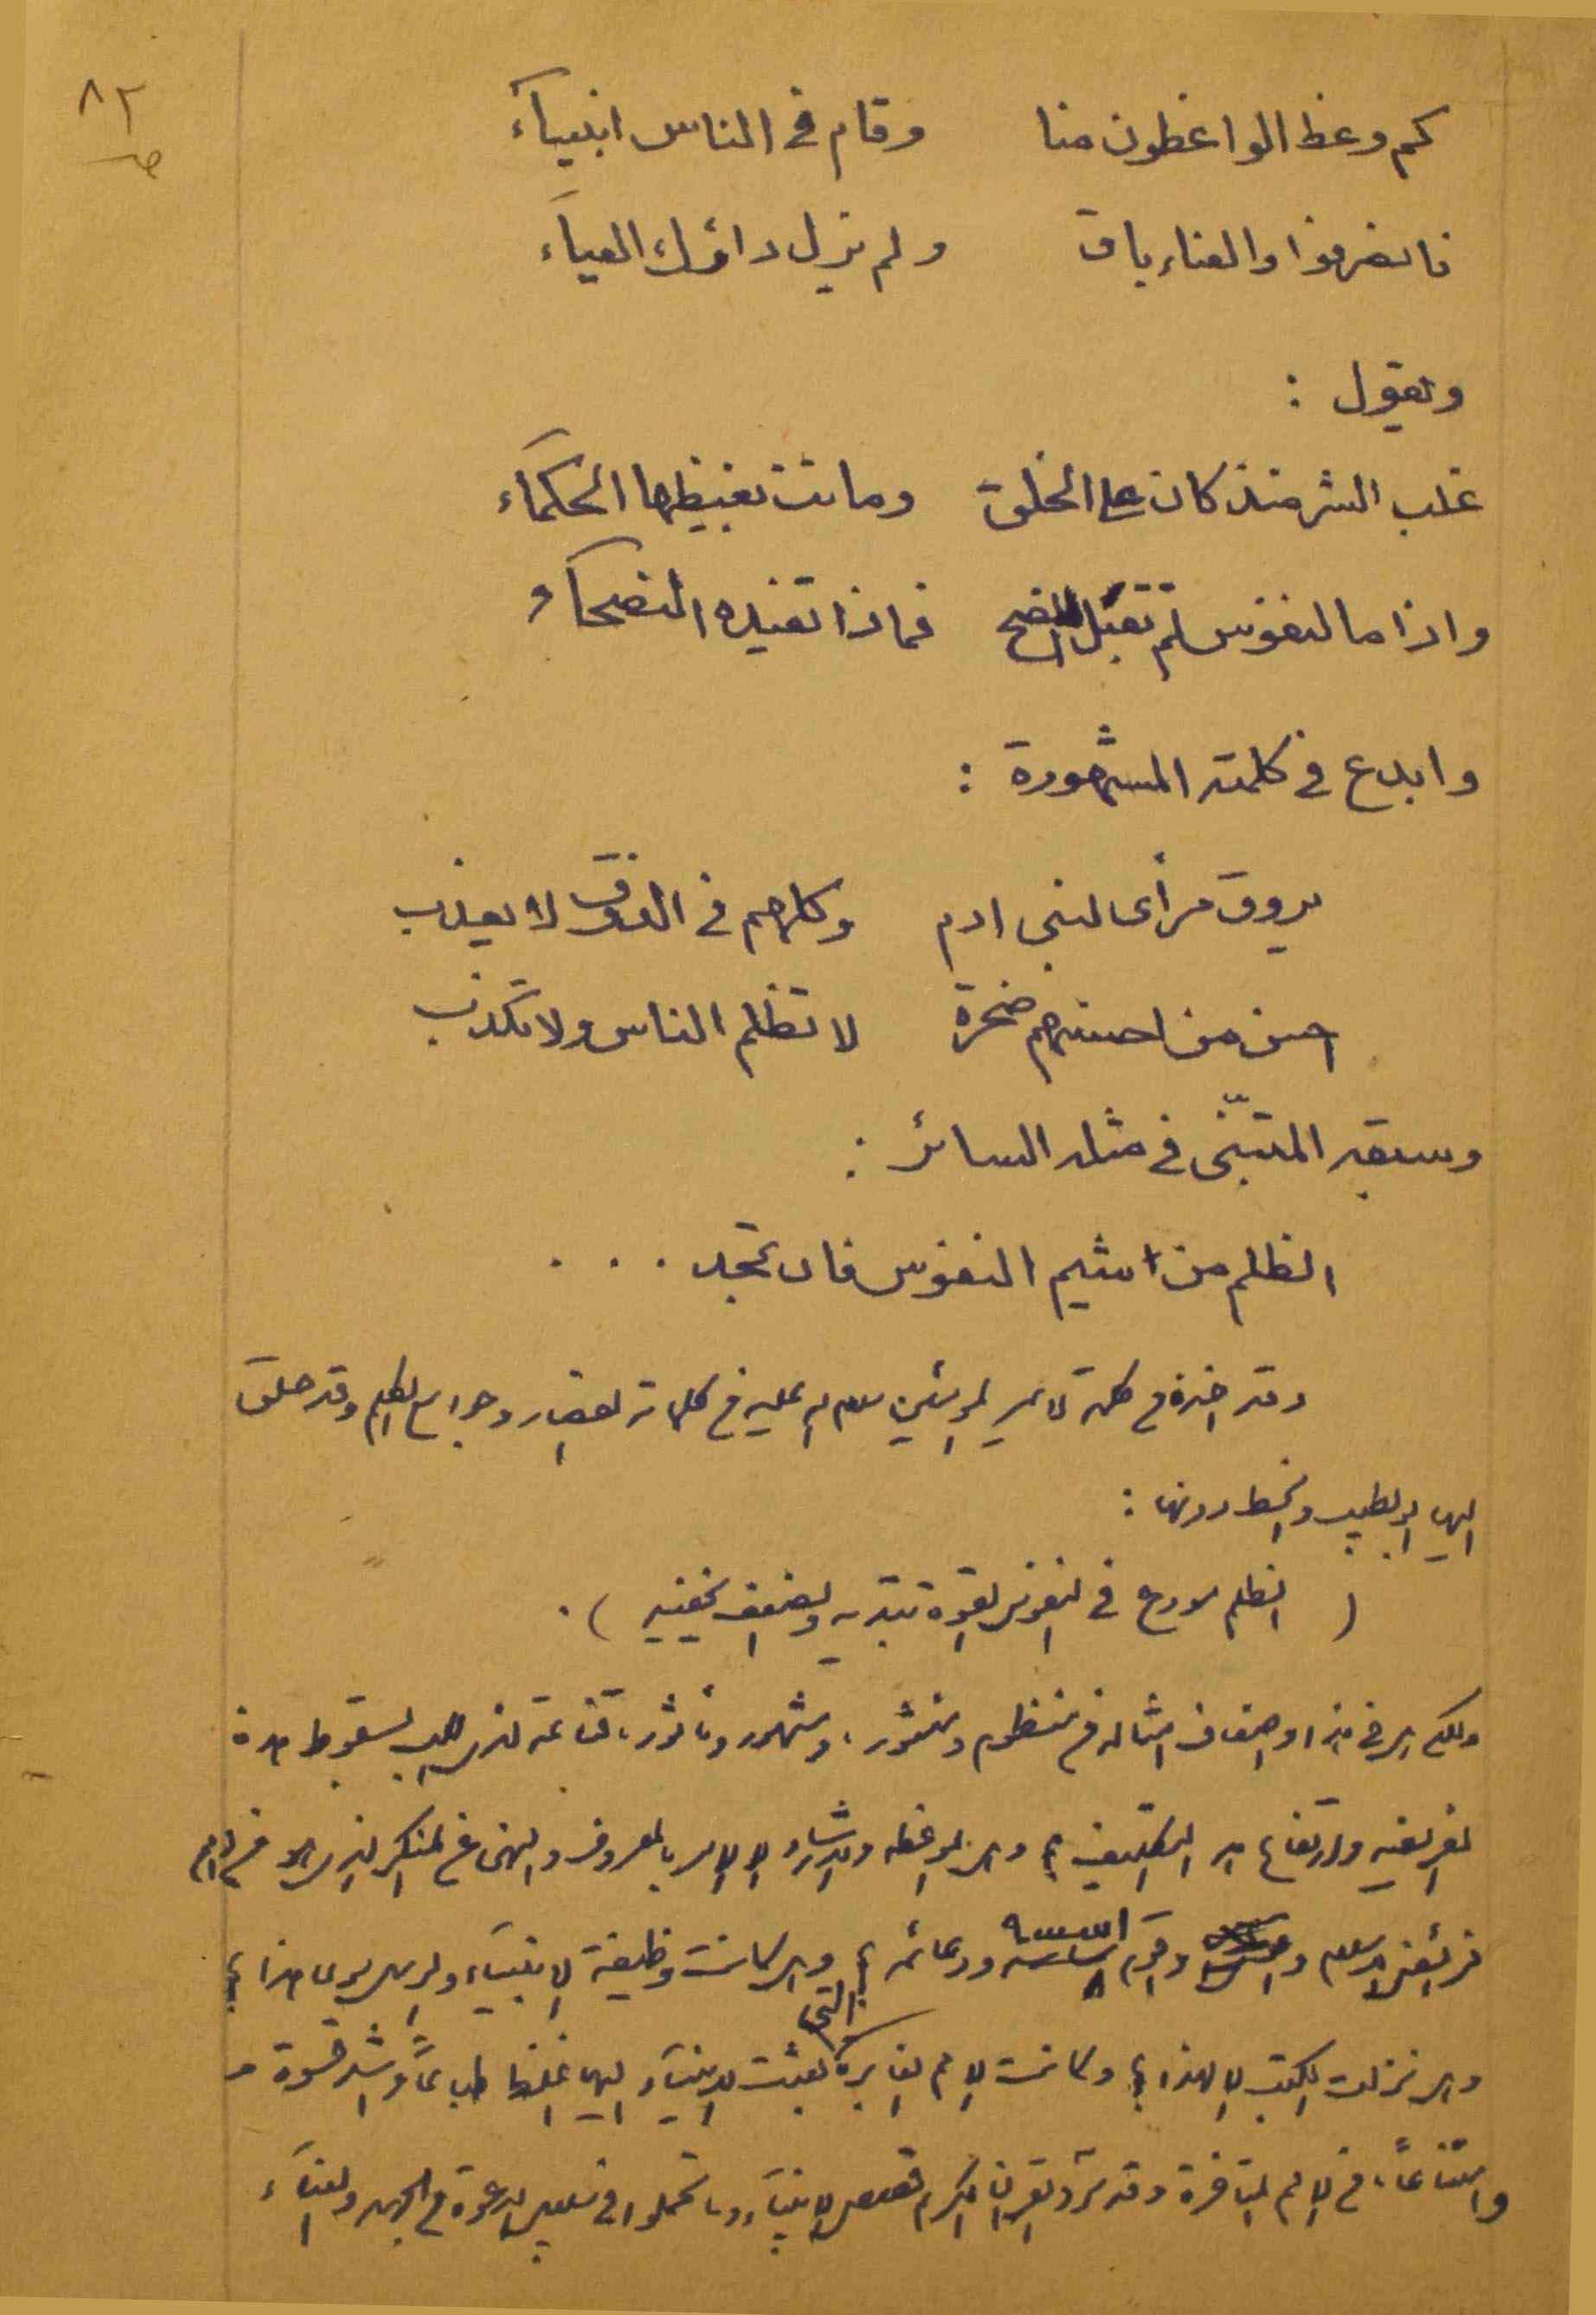 ٨٢
كم وعظ الواعظون منا وقام في الناس انبيآء
فانصرفوا والعناء باق ولم يزل داؤك العيآء
ويقول :
غلب الشر منذ كان على الخلق وماتت بغيظها الحكمآء
واذا ما النفوس لم تقبل النصح فماذا تفيده النصحآء
وابدع في كلمته المشهورة :
يروق مرأى لبني ادم وكلهم في الذوق لا يعذب
احسن من احسنهم صخرة لا تظلم الناس ولا تكذب
وسبقه المتنبّي في مثله السائر :
الظلم من شيم النفوس فان تجد . . .
وقد اخذه من كلمة لامير المؤمنين سلام الله عليه في كلماته القصار وجوامع الكلم وقد حلق
اليها ابو الطيب وانحط دونها :
( الظلم مودع في النفوس القوة تبديه والضعف يخفيه ) .
ولكن هل في هذا واضعاف امثاله من منظوم ومنثور ، ومشهور ومأثور ، قناعة لذي اللب بسقوط هذه
الفريضة وارتفاع هذا التكليف ؟ وهل الموعظه والارشاد الا الامر بالمعروف والنهي عن المنكر الذي هو من اهم
فرائض الاسلام وأقوم اسسه ودعائمه ؟ وهل كانت وظيفة الانبياء والرسل سوى هذا ؟
وهل نزلت الكتب الا لهذا ؟ وكانت الامم الغابرة التي بعثت الانبيآء اليها اغلظ طباعاً واشد قسوة و
وامتناعاً ، من الامم المتاخرة وقد سرد القران الكريم قصص الانبيآء وما تحملوا في سبيل الدعوة من الجهد والعنآء